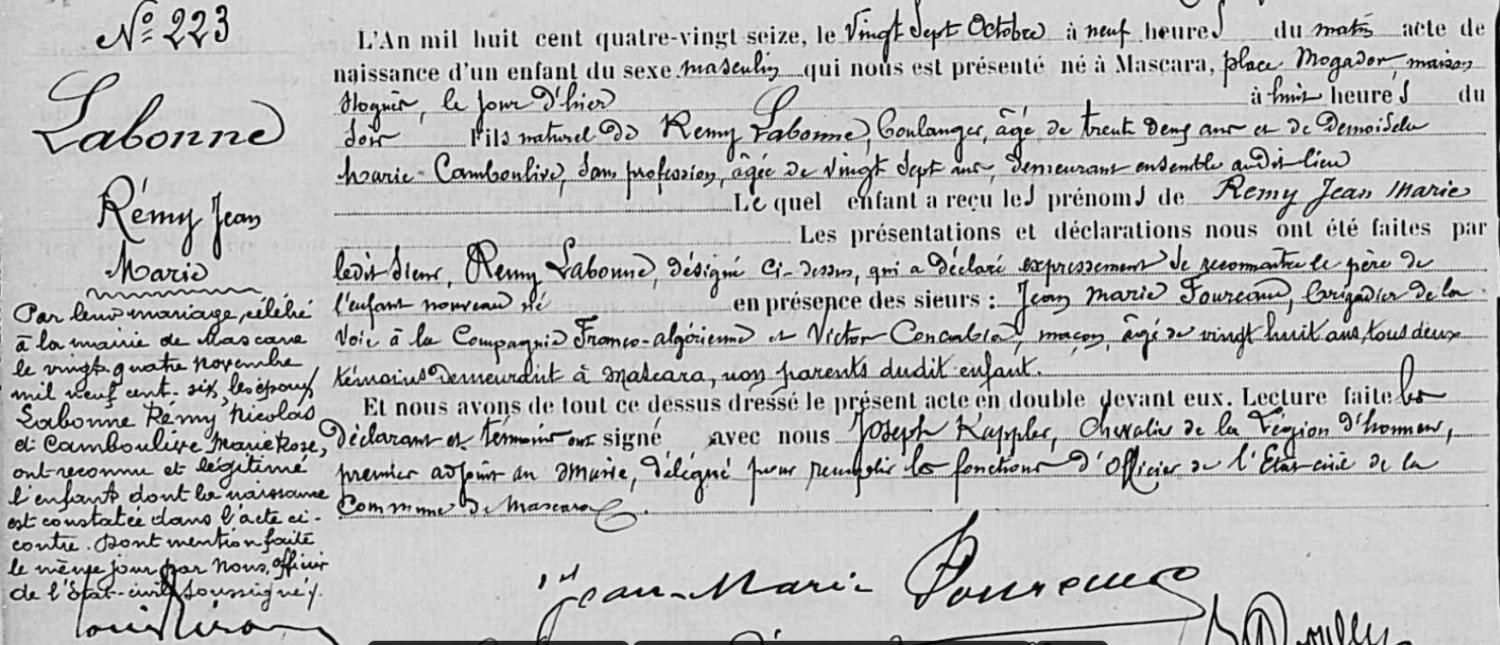 N° 223
Labonne
Rémy Jean
Marie
Par leur mariage, célébré
à la mairie de Mascara
le vingt quatre novembre
mil neuf cent six, les époux
Labonne Rémy Nicolas
et Camboulive Marie Rose,
ont reconnu et légitimé
l'enfant dont la naissance
est constatée dans l'acte ci-
contre. Dont mention faite
le même jour par Nous, officier
de l'Etat-civil soussigné.
L'An mil huit cent quatre-vingt seize, le Vingt Sept Octobre à neuf heures du matin acte de
naissance d'un enfant du sexe masculin qui nous est présenté né à Mascara, place Mogador, maison
le jour d'hier à huit heures du
soir Fils naturel de Remy Labonne, boulanger, âgé de trente deux ans et de Demoiselle
Marie Camboulive, sans profession, âgée de vingt sept ans, demeurant ensemble audit lieu
Le quel enfant a reçu les prénoms de Remy Jean Marie
Les présentations et déclarations nous ont été faites par
ledit sieur, Remy Labonne, désigné ci-dessus, qui a déclaré expressément se reconnaître le père de
l'enfant nouveau né en présence des sieurs : Jean Marie Foureaux, brigadier de la
Voie à la Compagnie Franco-algérienne et Victor maçon, âgé de vingt huit ans, tous deux
témoins demeurant à Mascara, non parents dudit enfant.
Et nous avons de tout ce dessus dressé le présent acte en double devant eux. Lecture faite les
déclarant et témoins ont signé avec nous Joseph Kappler, Chevalier de la Légion d'honneur,
premier adjoint au Maire, délégué pour remplir les fonctions d'Officier de l'Etat civil de la
Commune de Mascara.
Jean-Marie